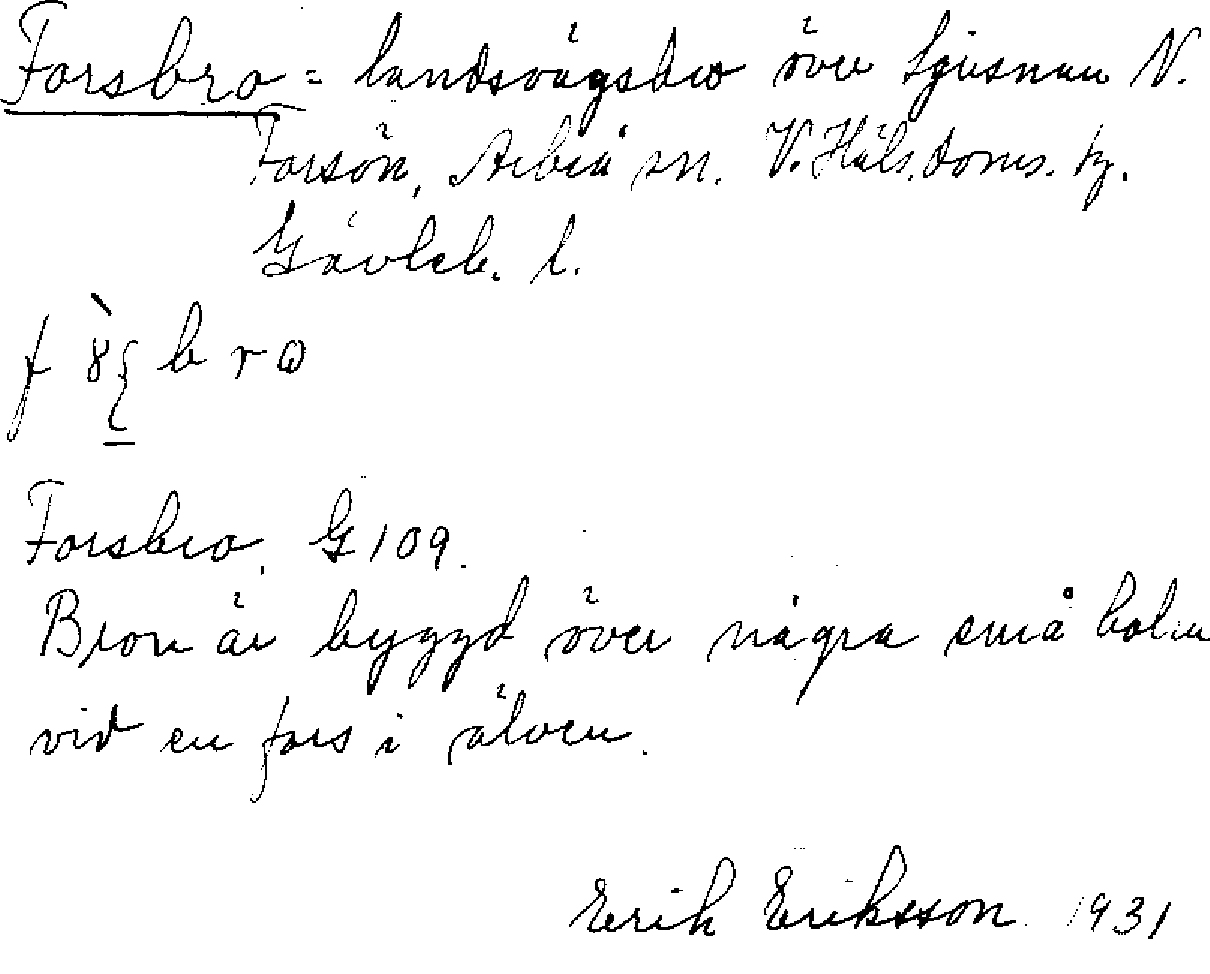 Forsbro = landsvägsbro över Ljusnan N.
Forsön, Arbrå sn. V. Häls. doms. tg.
Gävleb. l.
bro
Forsbro. G 109.
Bron är byggd över några små holm
vid en fors i älven.
Erik Eriksson 1931